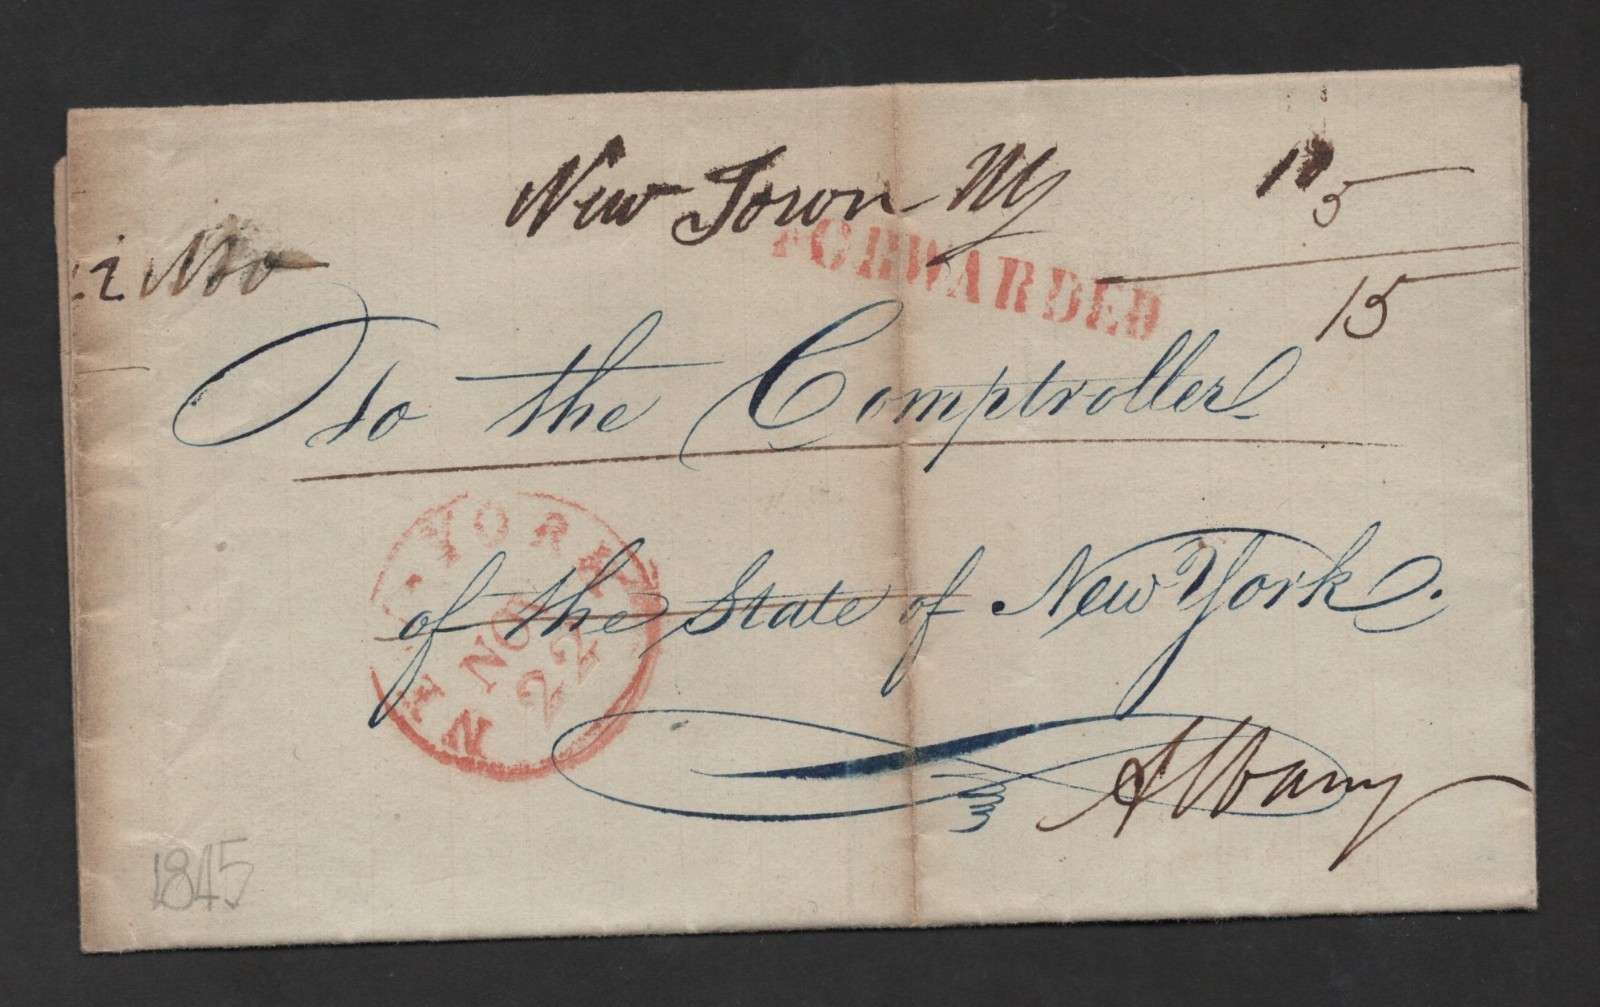 New Town NY 10
5
22 Nov
FORWARDED
15
To the Comptroller
of the State of New York.
NEW YORK
NOV
22
Albany
1845